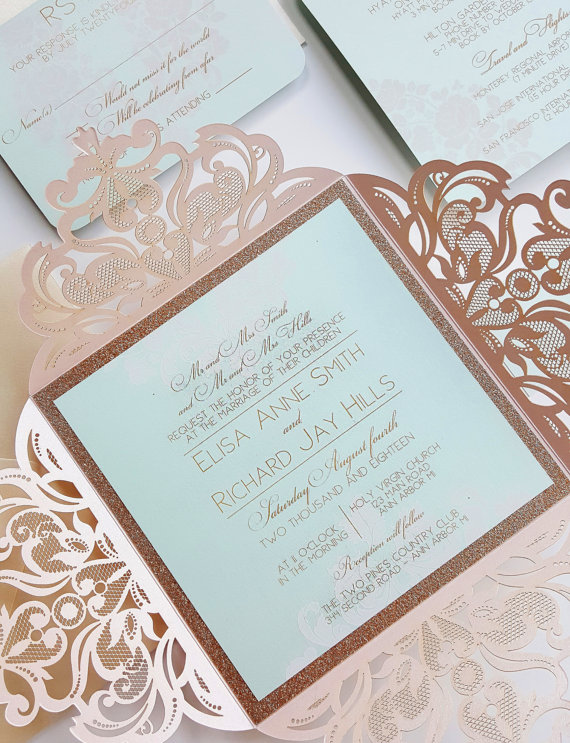 RS
YOUR RESPONSE IS KINDL
BY JULY TWENTY
Would not miss it for the world
Will be celebrating from afar
Name(s)
ATTENDING
HILTON GARDEN
5-7 MINUTE
BOOK BY OCTOBER
Travel and Flights
MONTEREY REGIONAL AIRPOR
SAN JOSE INTERNATIONAL
SAN FRANCISCO INTERNATION
Mr and Mrs Smith
and Mr and Mrs Hills
REQUEST THE HONOR OF YOUR PRESENCE
AT THE MARRIAGE OF THEIR CHILDREN
ELISA ANNE SMITH
and
RICHARD JAY HILLS
Saturday August fourth
TWO THOUSAND AND EIGHTEEN
AT 11 O'CLOCK
IN THE MORNING
HOLY VIRGIN CHURCH
123 NEW ROAD
ANN ARBOR MI
Reception will follow
THE TWO PINES COUNTRY CLUB
344 SECOND ROAD - ANN ARBOR MI